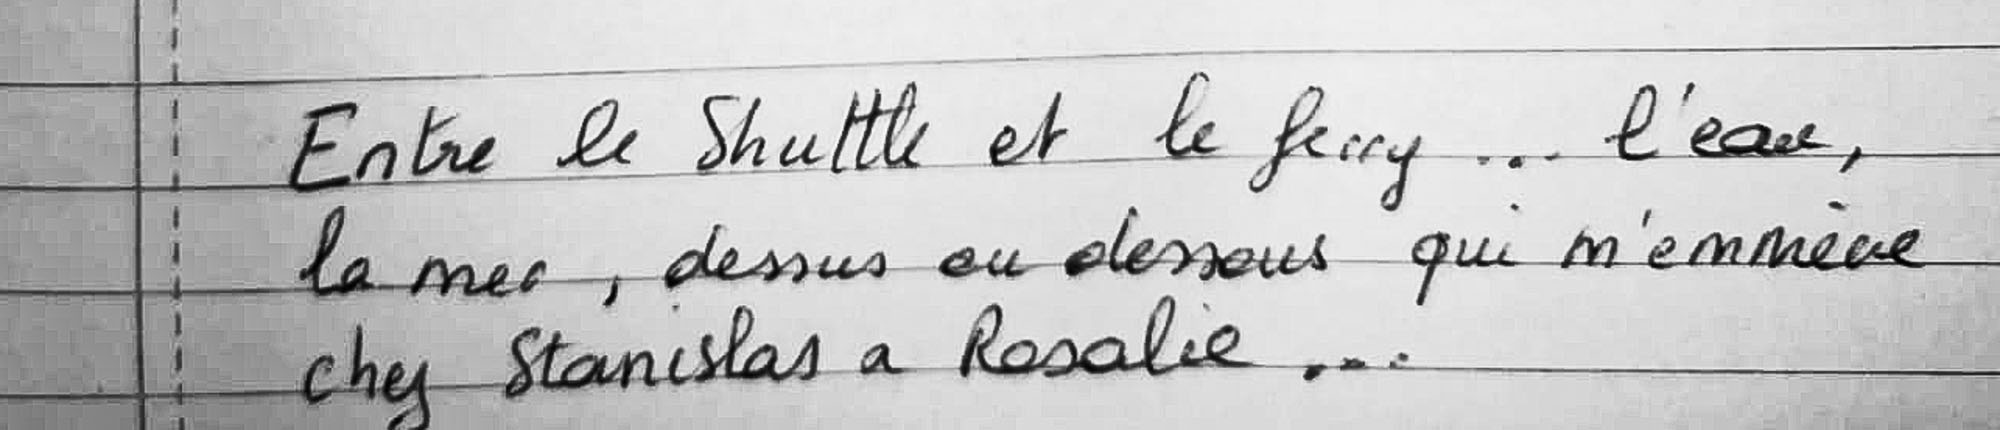 Entre le Shuttle et le ferry ... l'eau,
la mer, dessus ou dessous qui m'emmène
chez Stanislas a Rosalie ...